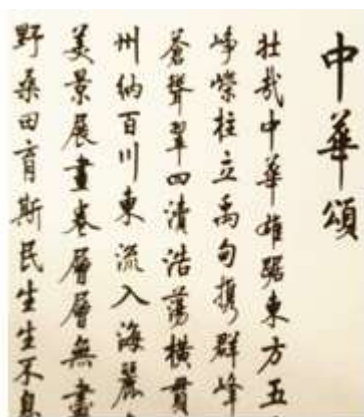 中華頌
壯哉中華雄踞東方五
崢嶸柱立禹甸携群峰
蒼聳翠四瀆浩蕩橫貫
州納百川東流入海麗
美景展畫卷層層無盡
野桑田育斯民生生不息